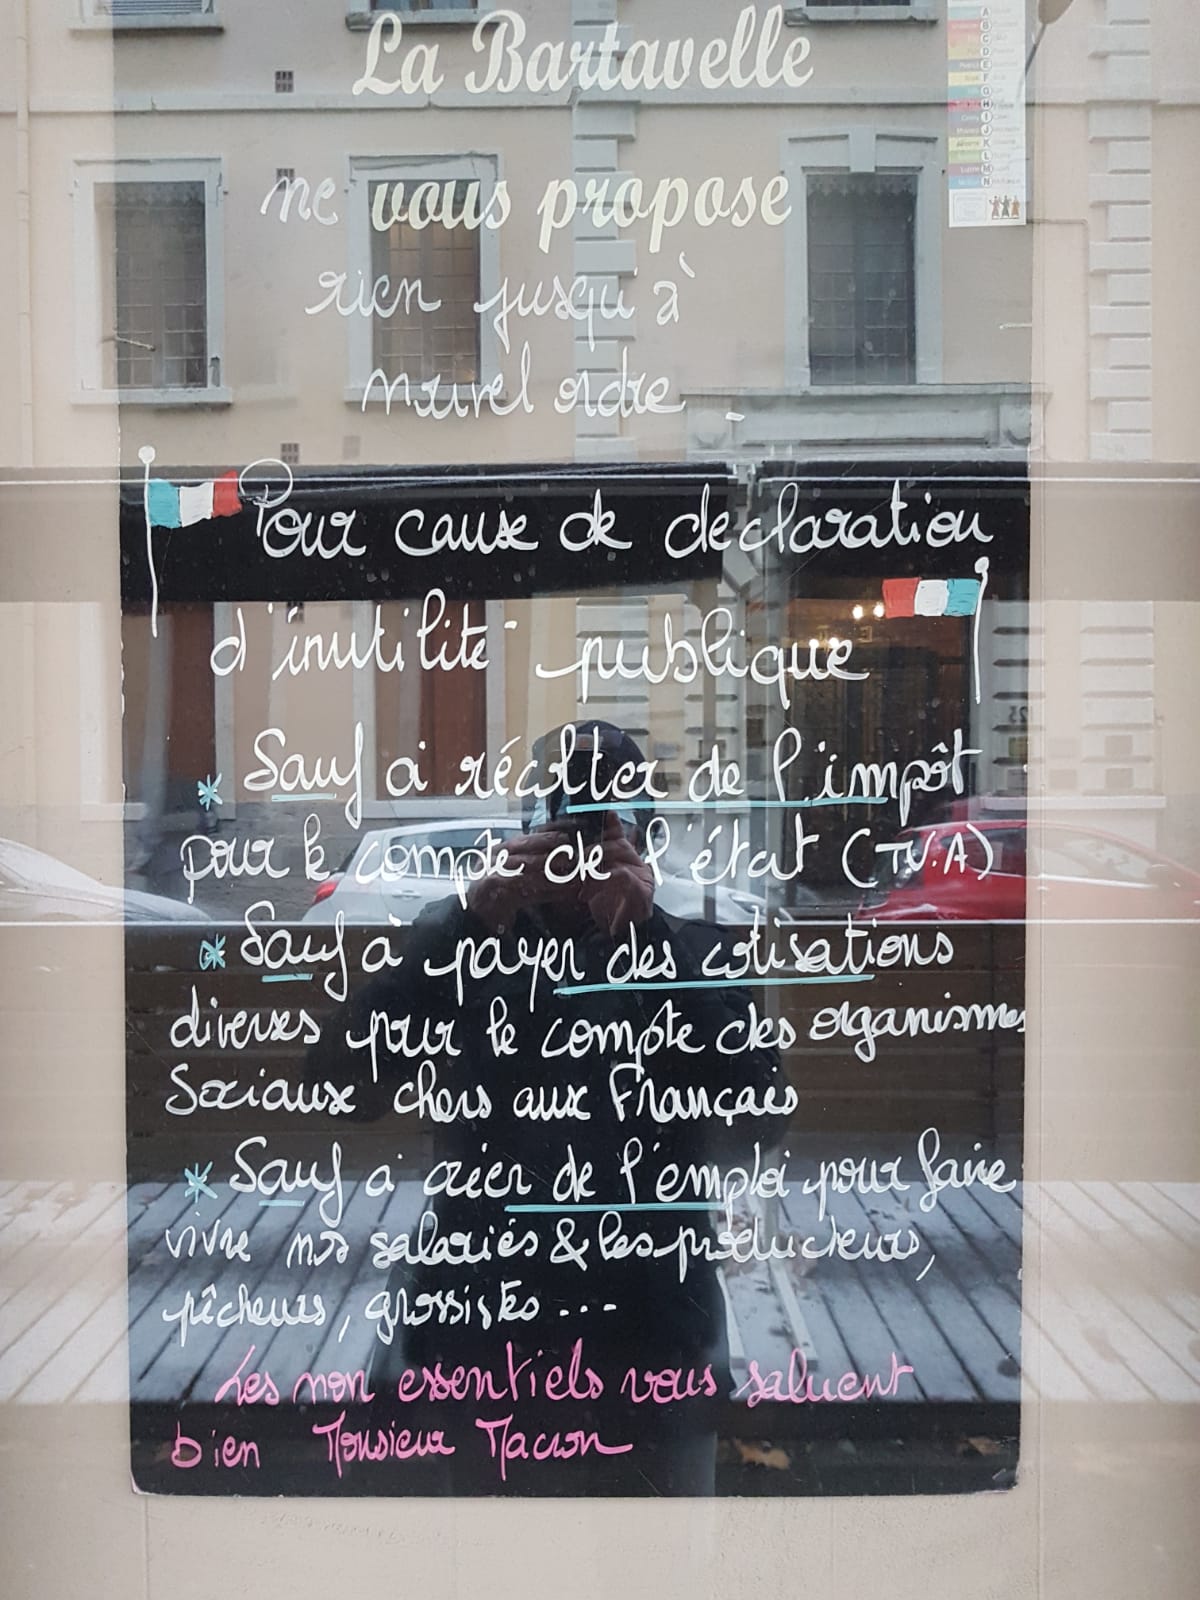 La Bartavelle
ne vous propose
rien jusqu'à
nouvel ordre.
Pour cause de declaration
d'inutilité publique
* Sauf à récolter de l'impôt
pour le compte de l'état (T.V.A)
* Sauf à payer des cotisations
diverses pour le compte des organismes
Sociaux chers aux Français
* Sauf à créer de l'emploi pour faire
vivre nos salariés & les producteurs,
pêcheurs, grossistes...
Les non essentiels vous saluent
bien Monsieur Macron
A
B
C
D
E
F
G
H
I
J
K
L
M
N